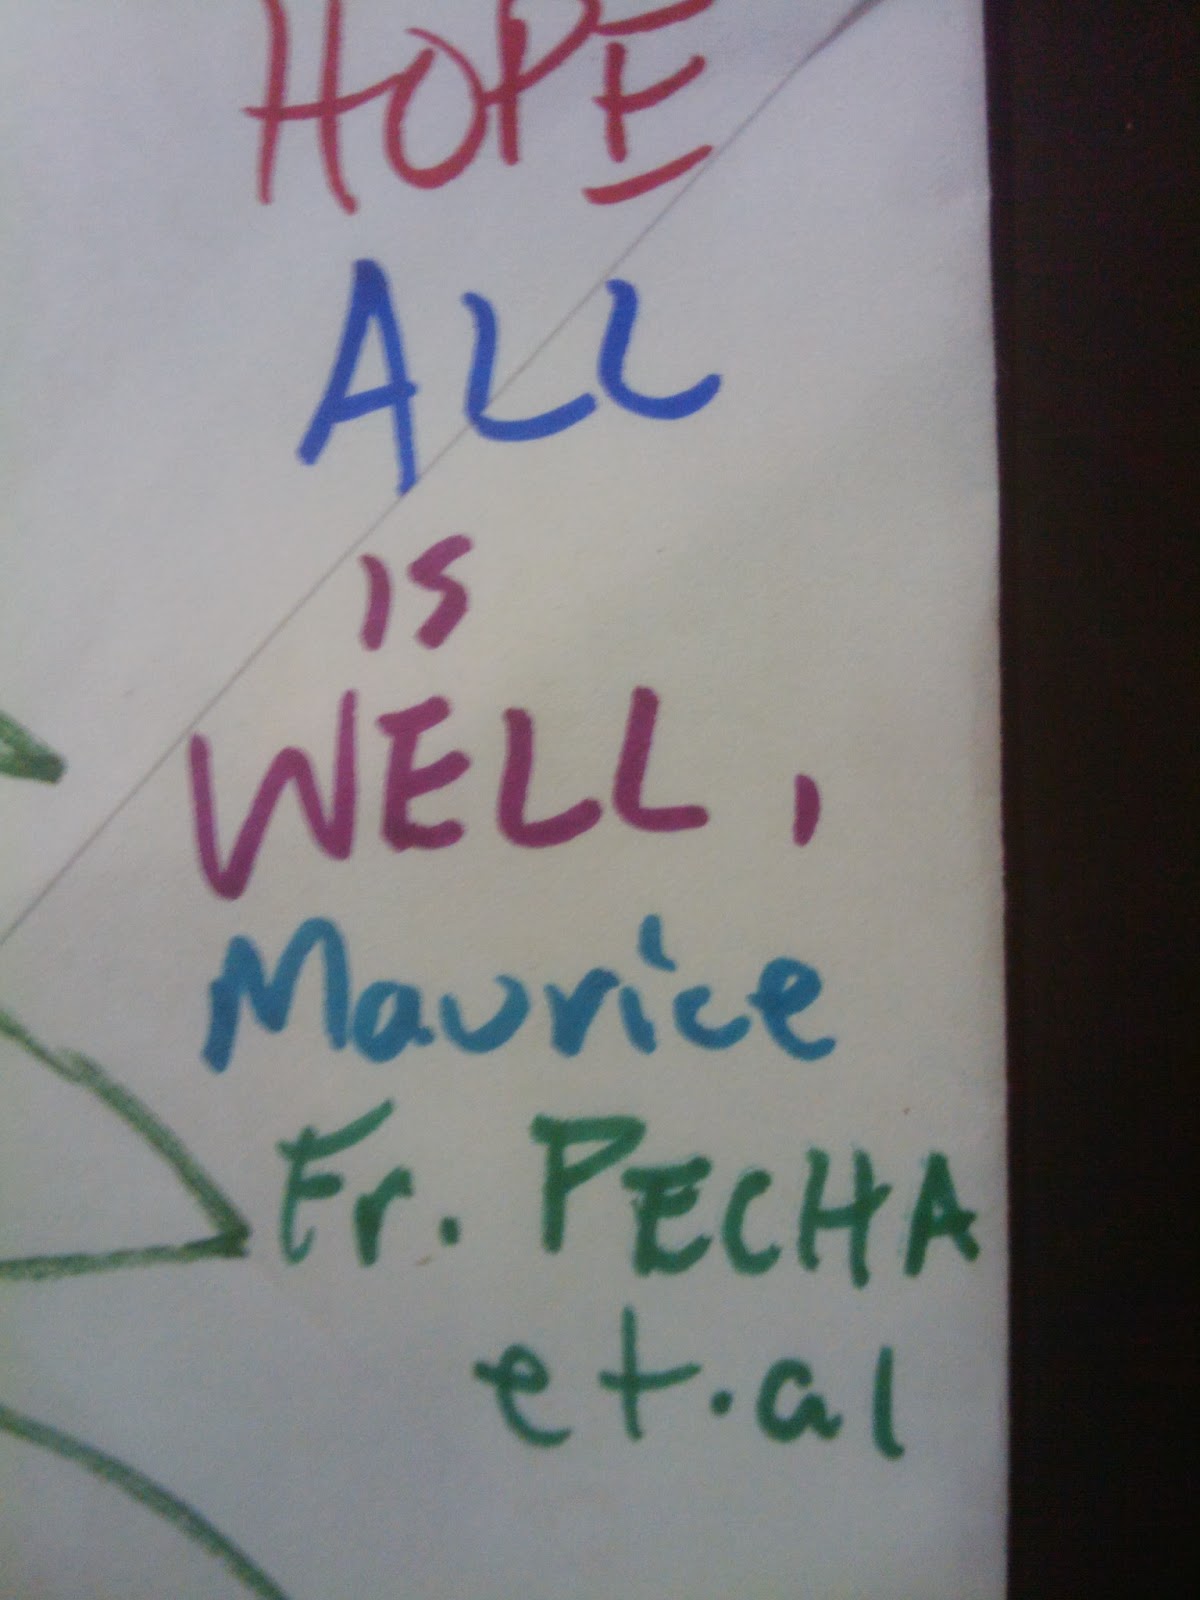 HOPE
ALL
is
WELL,
Maurice
Fr. PECHA
et.al